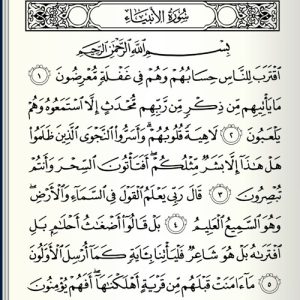 سُورَةُ الأَنبِيَاءِ
بِسْمِ اللَّهِ الرَّحْمَٰنِ الرَّحِيمِ
اقْتَرَبَ لِلنَّاسِ حِسَابُهُمْ وَهُمْ فِي غَفْلَةٍ مُّعْرِضُونَ ١
مَا يَأْتِيهِم مِّن ذِكْرٍ مِّن رَّبِّهِم مُّحْدَثٍ إِلَّا اسْتَمَعُوهُ وَهُمْ
يَلْعَبُونَ ٢ لَاهِيَةً قُلُوبُهُمْ وَأَسَرُّوا النَّجْوَى الَّذِينَ ظَلَمُوا
هَلْ هَٰذَا إِلَّا بَشَرٌ مِّثْلُكُمْ أَفَتَأْتُونَ السِّحْرَ وَأَنتُمْ
تُبْصِرُونَ ٣ قَالَ رَبِّي يَعْلَمُ الْقَوْلَ فِي السَّمَاءِ وَالْأَرْضِ
وَهُوَ السَّمِيعُ الْعَلِيمُ ٤ بَلْ قَالُوا أَضْغَاثُ أَحْلَامٍ بَلِ
افْتَرَاهُ بَلْ هُوَ شَاعِرٌ فَلْيَأْتِنَا بِآيَةٍ كَمَا أُرْسِلَ الْأَوَّلُونَ
٥ مَا آمَنَتْ قَبْلَهُم مِّن قَرْيَةٍ أَهْلَكْنَاهَا أَفَهُمْ يُؤْمِنُونَ